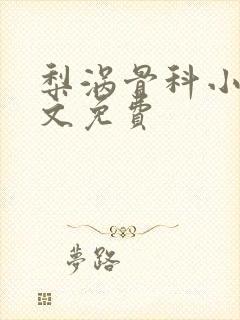 梨涡骨科小
文免費
夢路